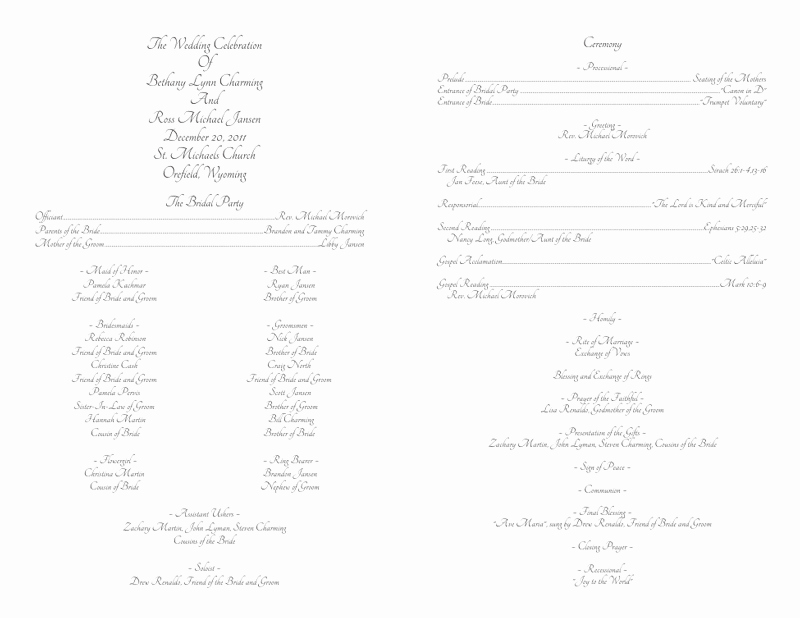 The Wedding Celebration
Of
Bethany Lynn Charming
And
Ross Michael Jansen
December 20, 2011
St. Michaels Church
Orefield, Wyoming
The Bridal Party
Officiant........Rev. Michael Morovich
Parents of the Bride........Brandon and Tammy Charming
Mother of the Groom........Libby Jansen
~ Maid of Honor ~
Pamela Kachmar
Friend of Bride and Groom
~ Best Man ~
Ryan Jansen
Brother of Groom
~ Bridesmaids ~
Rebecca Robinson
Friend of Bride and Groom
Christine Cash
Friend of Bride and Groom
Pamela Pervis
Sister-In-Law of Groom
Hannah Martin
Cousin of Bride
~ Groomsmen ~
Nick Jansen
Brother of Bride
Craig North
Friend of Bride and Groom
Scott Jansen
Brother of Groom
Bill Charming
Brother of Bride
~ Flowergirl ~
Christina Martin
Cousin of Bride
~ Ring Bearer ~
Brandon Jansen
Nephew of Groom
~ Assistant Ushers ~
Zachary Martin, John Lyman, Steven Charming
Cousins of the Bride
~ Soloist ~
Drew Renalds, Friend of the Bride and Groom
Ceremony
~ Processional ~
Prelude........Seating of the Mothers
Entrance of Bridal Party........"Canon in D"
Entrance of Bride........"Trumpet Voluntary"
~ Greeting ~
Rev. Michael Morovich
~ Liturgy of the Word ~
First Reading........Sirach 26:1-4,13-16
Jan Feese, Aunt of the Bride
Responsorial........"The Lord is Kind and Merciful"
Second Reading........Ephesians 5:29,25-32
Nancy Long, Godmother/Aunt of the Bride
Gospel Acclamation........"Celtic Alleluia"
Gospel Reading........Mark 10:6-9
Rev. Michael Morovich
~ Homily ~
~ Rite of Marriage ~
Exchange of Vows
Blessing and Exchange of Rings
~ Prayer of the Faithful ~
Lisa Renalds, Godmother of the Groom
~ Presentation of the Gifts ~
Zachary Martin, John Lyman, Steven Charming, Cousins of the Bride
~ Sign of Peace ~
~ Communion ~
~ Final Blessing ~
"Ave Maria", sung by Drew Renalds, Friend of Bride and Groom
~ Closing Prayer ~
~ Recessional ~
"Joy to the World"